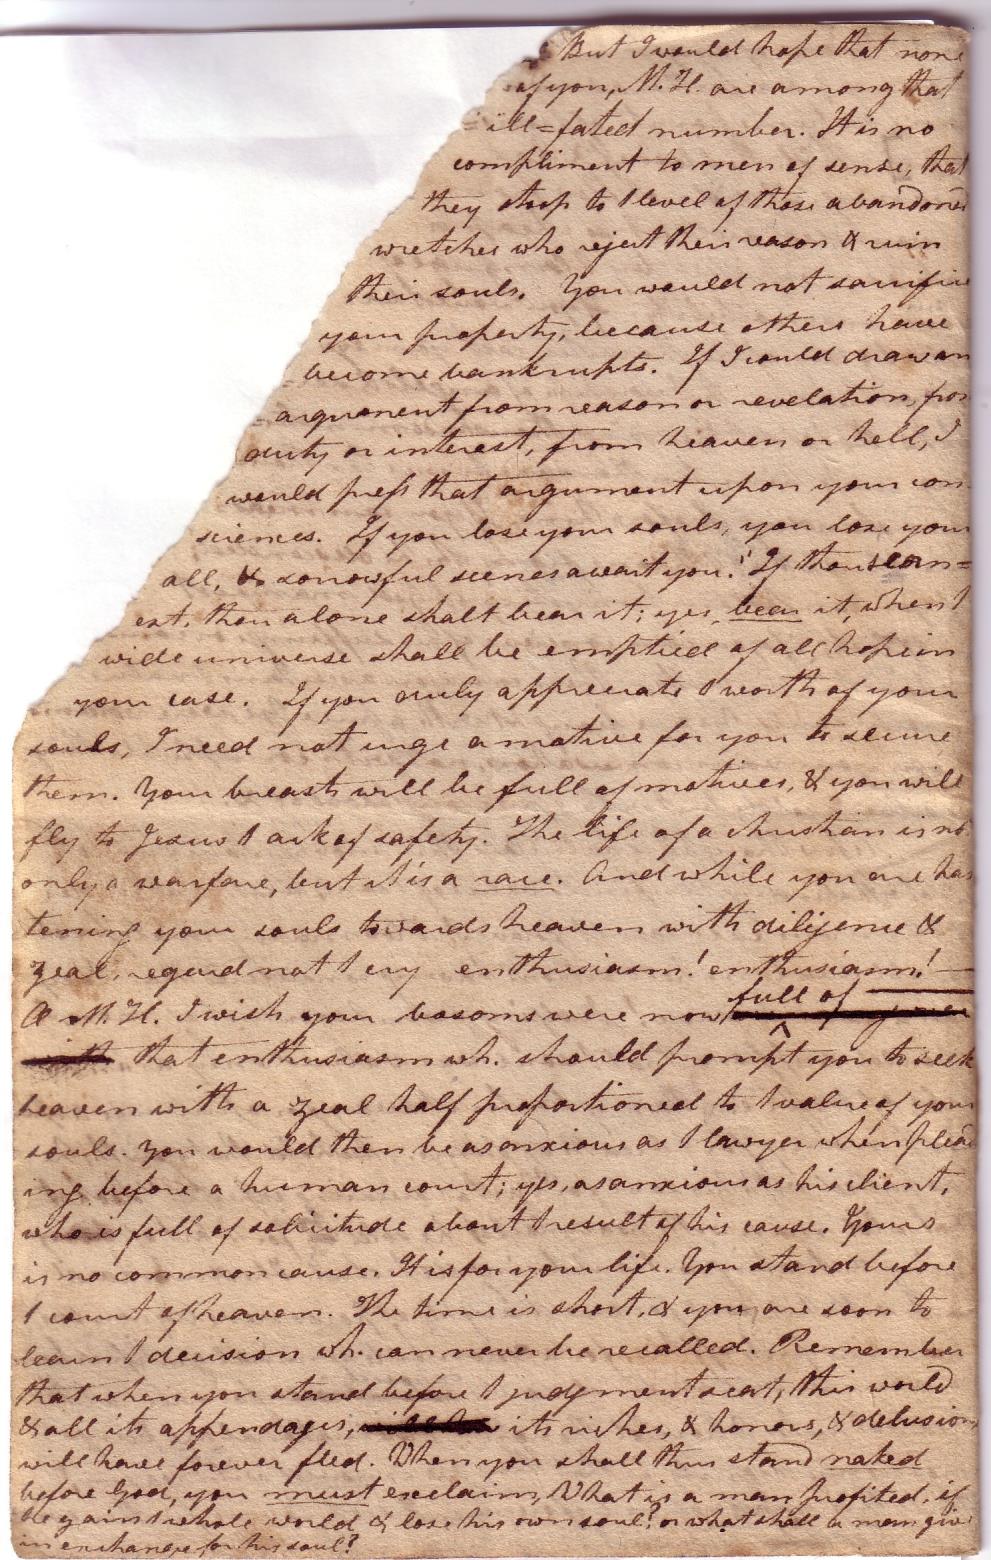 But I would hope that none
of you, M. H. are among that
ill=fated number. It is no
compliment to men of sense, that
they stoop to 1 level of those abandoned
wretches who reject their reason & ruin
their souls. You would not sacrifice
your property, because others have
become bankrupts. If I could draw an
argument from reason or revelation, from
duty or interest, from heaven or hell, I
would press that argument upon your con
sciences. If you lose your souls, you lose your
all, & sorrowful scenes await you. "If thou scorn=
est, thou alone shalt bear it; yes, bear it, when 1
wide universe shall be emptied of all hope in
your case. If you duly appreciate 1 worth of your
souls, I need not urge a motive for you to secure
them. Your breasts will be full of motives, & you will
fly to Jesus 1 ark of safety. The life of a christian is not
only a warfare, but it is a race. And while you are has
tening your souls towards heaven with diligence &
zeal, regard not 1 cry enthusiasm! enthusiasm! —
O M. H. I wish your bosoms were now full of
that enthusiasm wh. should prompt you to seek
heaven with a zeal half proportioned to 1 value of your
souls. You would then be as anxious as 1 lawyer when plead
ing before a human court; yes, as anxious as his client,
who is full of solicitude about 1 result of his cause. Yours
is no common cause. It is for your life. You stand before
1 court of heaven. The time is short, & you are soon to
learn 1 decision wh. can never be recalled. Remember
that when you stand before 1 judgment seat, this world
& all its appendages, its riches, & honors, & delusions
will have forever fled. When you shall thus stand naked
before God, you must exclaim, What is a man profited, if
he gain 1 whole world & lose his own soul? or what shall a man give
in exchange for his soul?